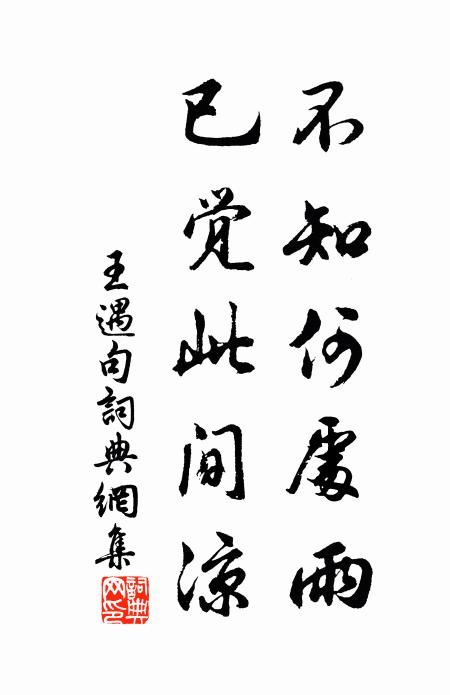 不知何處雨
已觉此间涼
王遇句詞典網集
詞典网印